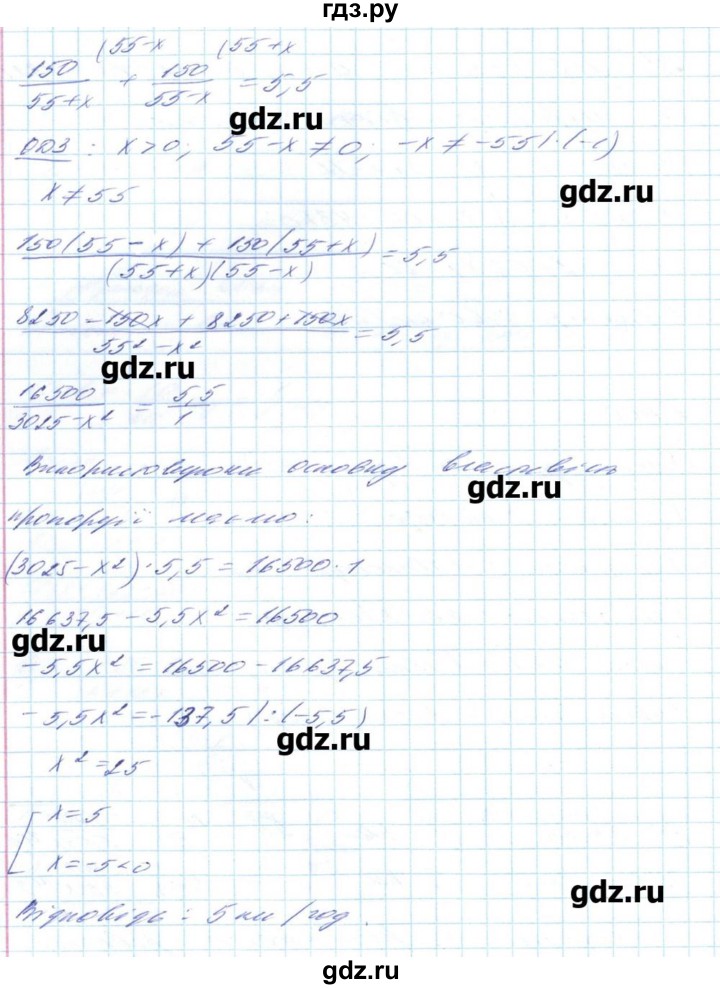 гдз.ру
(55-x (55+x
150/55+x + 150/55-x = 5,5
gdz.ru
ОДЗ : x>0; 55-x≠0; -x≠-55|·(-1)
gdz.ru
x≠55
150(55-x) + 150(55+x)/(55+x)(55-x) = 5,5
8250-150x + 8250+150x/55²-x² = 5,5
gdz.ru
16500/3025-x² = 5,5/1
Використовуючи основну властивість
gdz.ru
пропорції маємо:
(3025-x²)·5,5 = 16500·1
16637,5 - 5,5x² = 16500
gdz.ru
-5,5x² = 16500-16637,5
-5,5x² = -137,5 |:(-5,5)
gdz.ru
x² = 25
[ x = 5
x = -5<0
gdz.ru
Відповідь: 5 км/год.
gdz.ru